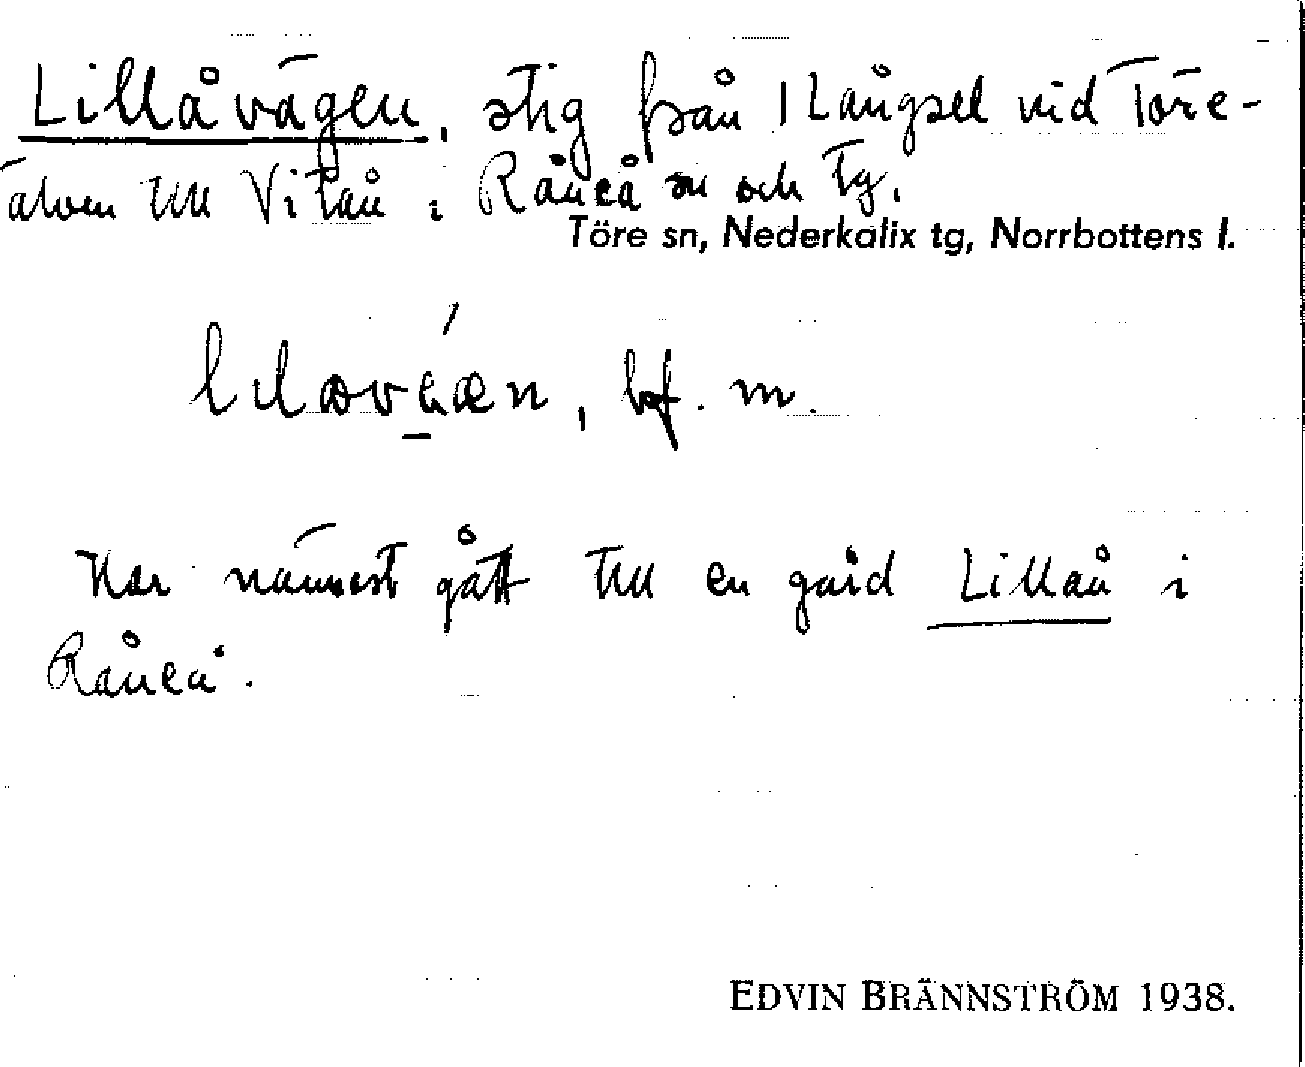 Lillåvägen, stig från Långsel vid Töre-
älven till Vitån i Råneå sn och tg.
Töre sn, Nederkalix tg, Norrbottens l.
bf. m.
Har närmast gått till en gård Lillån i
Råneå.
EDVIN BRÄNNSTRÖM 1938.